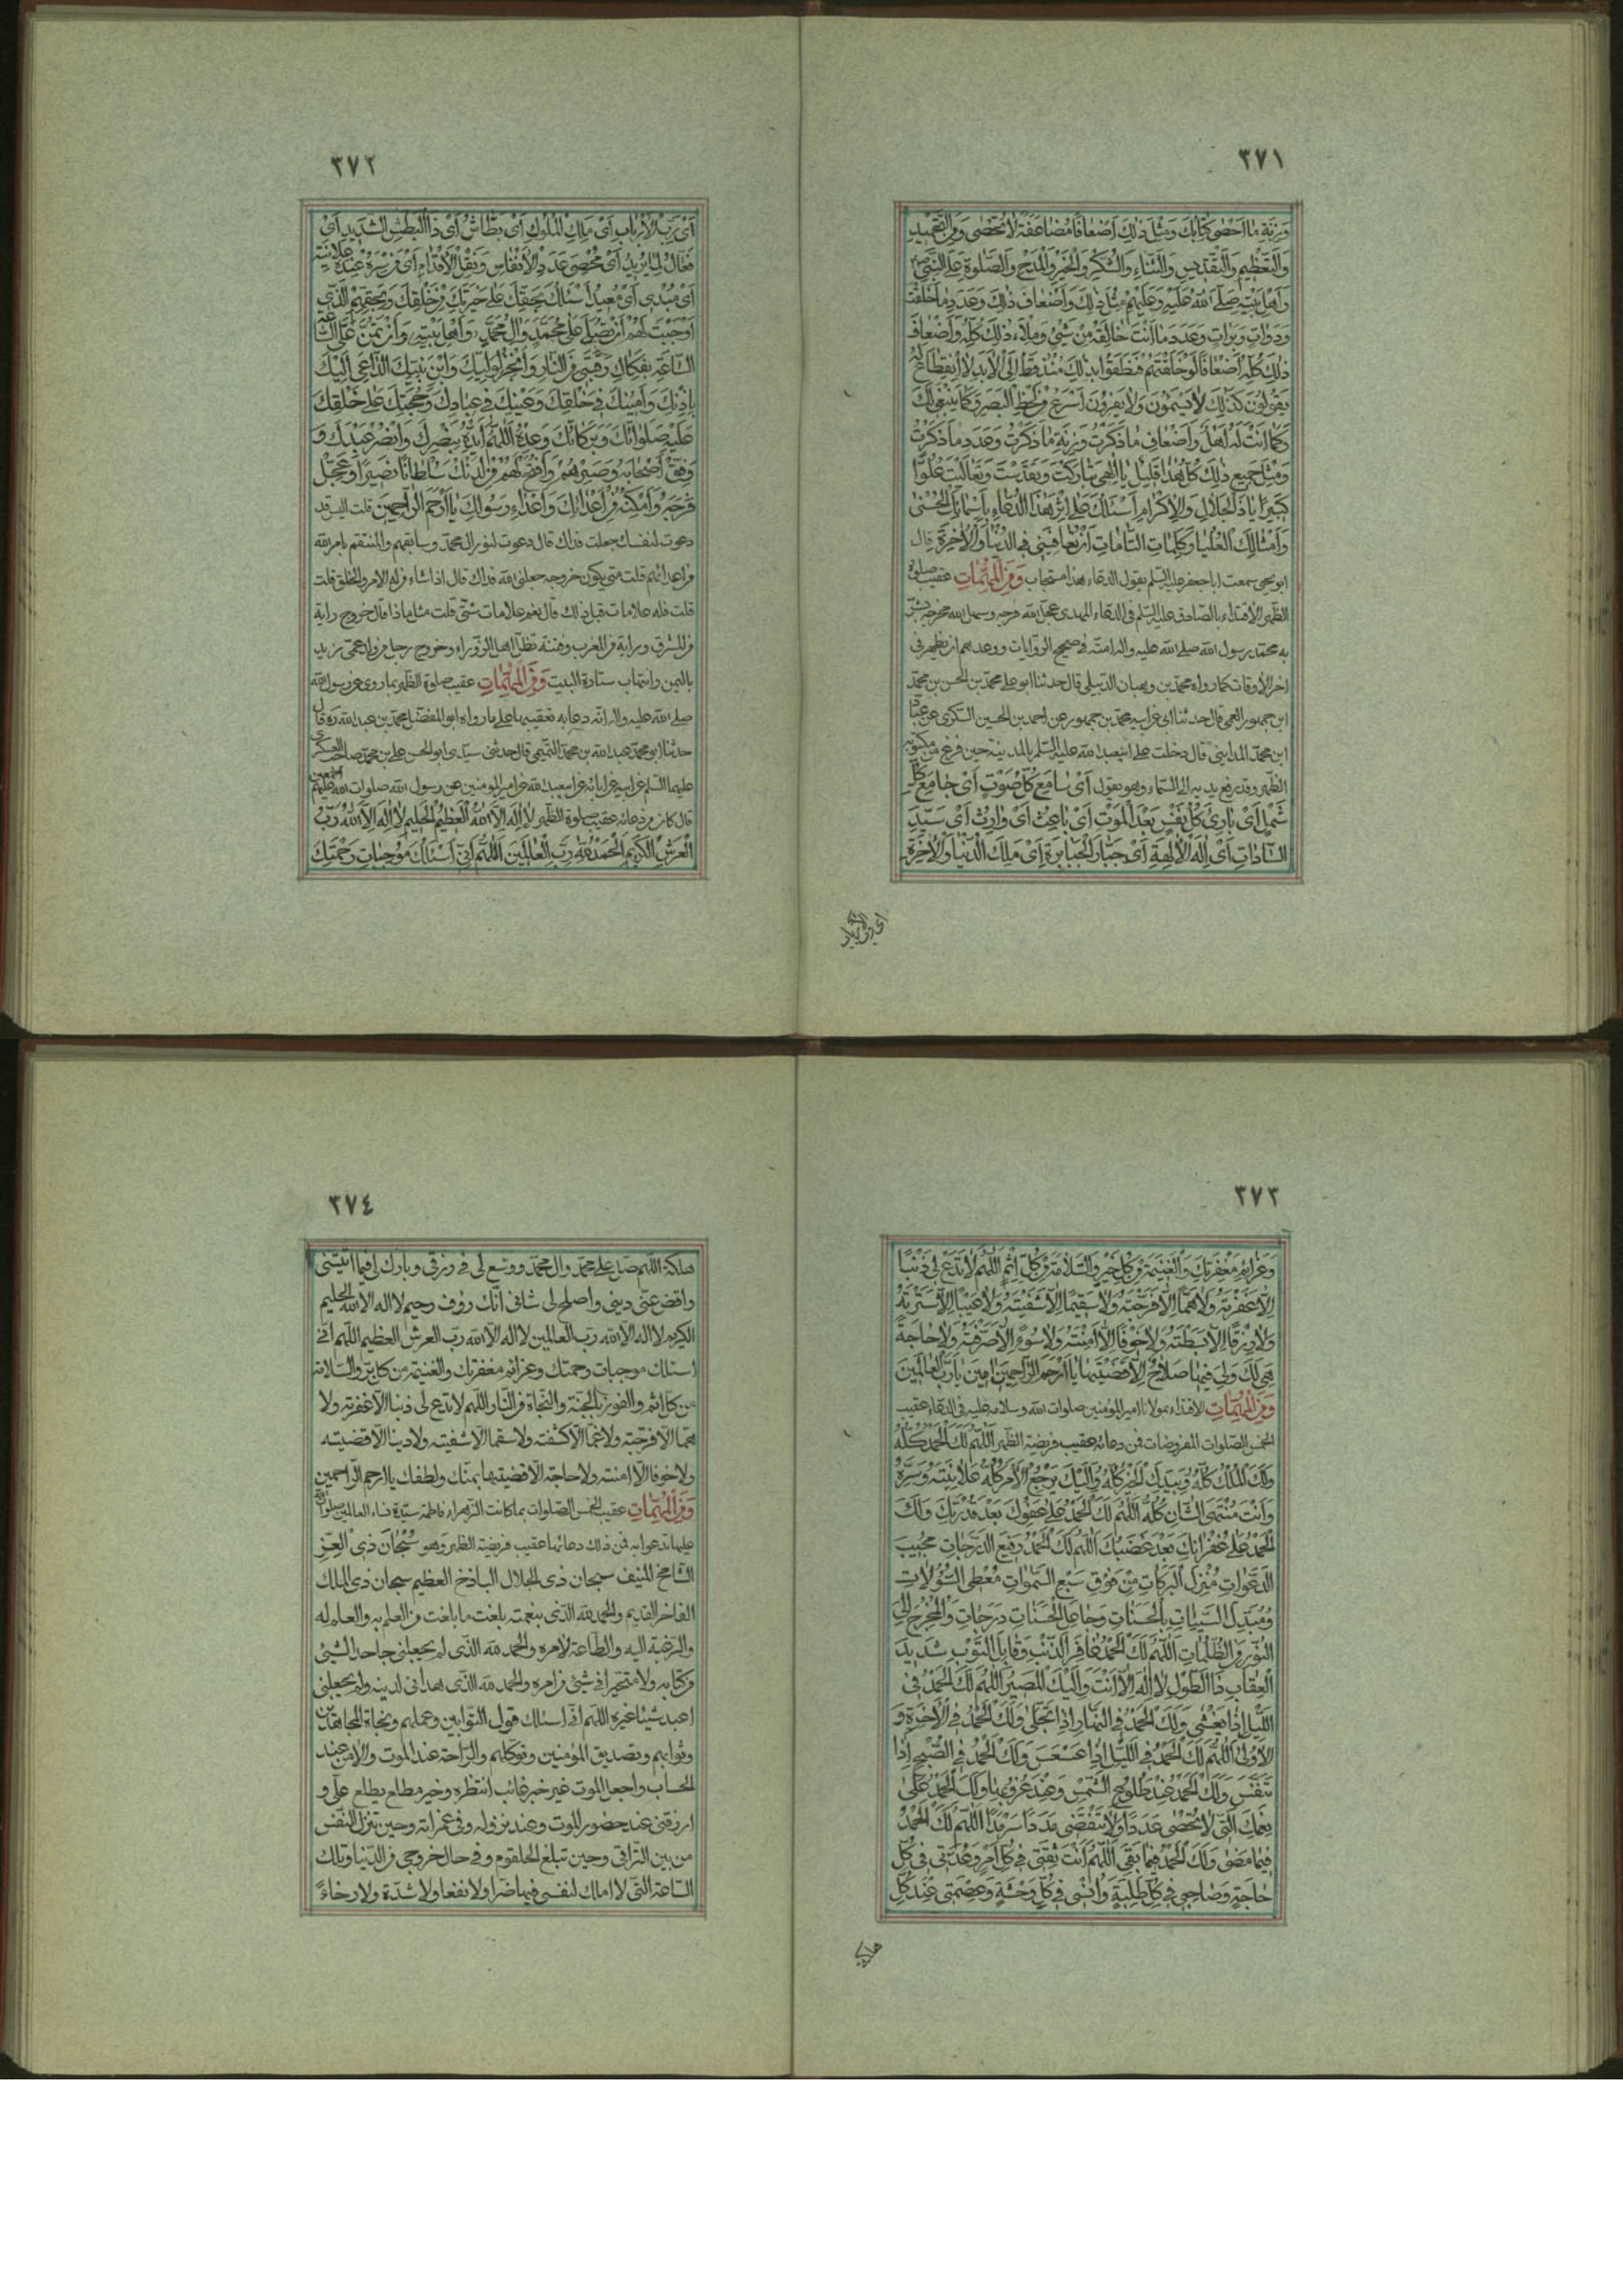 ٣٧١
وزنة ما احصى كتابك ومثل ذلك اضعافا مضاعفة لا تحصى ومن التحميد
والتعظيم والتقديس والثناء والشكر والخير والمدح والصلوة على النبي
واهل بيته صلى الله عليه وعليهم مثل ذلك واضعاف ذلك وعدد ما خلقت
وذرات وبرات وعدد ما انت خالقه من شيء وملاء ذلك كله واضعاف
ذلك كله اضعافا لو خلقتهم فنطقوا بذلك منذ قط الى الابد لا انقطاع له
يقولون كذلك لا يسئمون ولا يفترون اسرع من لحظ البصر وكما ينبغي لك
وكما انت له اهل واضعاف ما ذكرت وزنة ما ذكرت وعدد ما ذكرت
ومثل جميع ذلك كل هذا قليل يا الهي تباركت وتقدست وتعاليت علوا
كبيرا يا ذا الجلال والاكرام اسئلك على اثر هذا الدعاء باسمائك الحسنى
وامثالك العليا وكلماتك التامات ان تعافيني في الدنيا والاخرة قال
ابو يحيى سمعت ابا جعفر عليه السلم يقول الدعاء بهذا مستجاب ومن المهمات عقيب صلوة
الظهر الاقتداء بالصادق عليه السلم في الدعاء للمهدي عجل الله فرجه وسهل الله مخرجه
به محمد رسول الله صلى الله عليه واله امته في صحيح الروايات ووعدهم انه يظهر في
اخر الاوقات كما رواه محمد بن وهبان الدبيلي قال حدثنا ابو علي محمد بن الحسن بن محمد
ابن جمهور العمي قال حدثنا ابي عن ابيه محمد بن جمهور عن احمد بن الحسين السكري عن عباد
ابن محمد المدايني قال دخلت على ابيعبد الله عليه السلم بالمدينة حين فرغ من مكتوبة
الظهر وقد رفع يديه الى السماء وهو يقول اي سامع كل صوت اي جامع كل
شمل اي بارئ كل نفس بعد الموت اي باعث اي وارث اي سيد
السادات اي اله الالهة اي جبار الجبابرة اي ملك الدنيا والاخرة
اي رب الارباب
٣٧٢
اي رب الارباب اي ملك الملوك اي بطاش اي ذا البطش الشديد اي
فعالا لما يريد اي محصي عدد الانفاس ونقل الاقدام اي من السر عنده علانية
اي مبدئ اي معيد اسئلك بحقك على خيرتك من خلقك وبحقهم الذي
اوجبت لهم ان تصلي على محمد وال محمد واهل بيته وان تمن علي
الساعة بفكاك رقبتي من النار وانجز لوليك وابن نبيك الداعي اليك
باذنك وامينك في خلقك وعينك في عبادك وحجتك على خلقك
عليه صلواتك وبركاتك وعده اللهم ايده بنصرك وانصر عبدك و
وفق اصحابه وصبرهم وافتح لهم من لدنك سلطانا نصيرا وعجل
فرجه وامكنه من اعدائك واعداء رسولك يا ارحم الراحمين قلت اليس قد
دعوت لنفسك جعلت فداك قال دعوت لنور ال محمد وسابقهم والمنتقم بامر الله
من اعدائهم قلت متى يكون خروجه جعلني الله فداك قال اذا شاء من له الامر والخلق قلت
قلت فله علامات قبل ذلك قال نعم علامات شتى قلت مثل ماذا قال خروج راية
من المشرق وراية من المغرب وفتنة تظل اهل الزوراء وخروج رجل من ولد عمي زيد
باليمن وانتهاب ستارة البيت ومن المهمات عقيب صلوة الظهر بما روي عن رسول الله
صلى الله عليه واله انه دعا به تعقيبها على ما رواه ابو المفضل محمد بن عبد الله ره قال
حدثنا ابو محمد عبد الله بن محمد التميمي قال حدثني سيدي ابو الحسن علي بن محمد صاحب العسكري
عليهما السلم عن ابيه عن ابائه عن ابيعبد الله عن امير المومنين عن رسول الله صلوات الله عليهم اجمعين
قال كان من دعائه عقيب صلوة الظهر لا اله الا الله العظيم الحليم لا اله الا الله رب
العرش الكريم الحمد لله رب العالمين اللهم اني اسئلك موجبات رحمتك
٣٧٣
وعزائم مغفرتك والغنيمة من كل خير والسلامة من كل اثم اللهم لا تدع لي ذنبا
الا غفرته ولا هما الا فرجته ولا سقما الا شفيته ولا عيبا الا سترته
ولا رزقا الا بسطته ولا خوفا الا امنته ولا سوء الا صرفته ولا حاجة
هي لك ولي فيها صلاح الا قضيتها يا ارحم الراحمين امين يا رب العالمين
ومن المهمات الاقتداء بمولانا امير المومنين صلوات الله وسلامه عليه في الدعاء عقيب
الخمس الصلوات المفروضات فمن دعائه عقيب فريضة الظهر اللهم لك الحمد كله
ولك الملك كله وبيدك الخير كله واليك يرجع الامر كله علانيته وسره
وانت منتهى الشان كله اللهم لك الحمد على عفوك بعد قدرتك ولك
الحمد على غفرانك بعد غضبك اللهم لك الحمد رفيع الدرجات مجيب
الدعوات منزل البركات من فوق سبع السموات معطي السؤلات
ومبدل السيئات بالحسنات وجاعل الحسنات درجات والمخرج الى
النور من الظلمات اللهم لك الحمد غافر الذنب وقابل التوب شديد
العقاب ذا الطول لا اله الا انت واليك المصير اللهم لك الحمد في
الليل اذا يغشى ولك الحمد في النهار اذا تجلى ولك الحمد في الاخرة و
الاولى اللهم لك الحمد في الليل اذا عسعس ولك الحمد في الصبح اذا
تنفس ولك الحمد عند طلوع الشمس وعند غروبها ولك الحمد على
نعمك التي لا تحصى عددا ولا تنقضي مددا سرمدا اللهم لك الحمد
فيما مضى ولك الحمد فيما بقي اللهم انت ثقتي في كل امر وعدتي في كل
حاجة وصاحبي في كل طلبة وانسي في كل وحشة وعصمتي عند كل
هلكة
٣٧٤
هلكة اللهم صل على محمد وال محمد ووسع لي في رزقي وبارك لي فيما اتيتني
واقض عني ديني واصلح لي شاني انك رؤف رحيم لا اله الا الله الحليم
الكريم لا اله الا الله رب العالمين لا اله الا الله رب العرش العظيم اللهم اني
اسئلك موجبات رحمتك وعزائم مغفرتك والغنيمة من كل بر والسلامة
من كل اثم والفوز بالجنة والنجاة من النار اللهم لا تدع لي ذنبا الا غفرته ولا
هما الا فرجته ولا غما الا كشفته ولا سقما الا شفيته ولا دينا الا قضيته
ولا خوفا الا امنته ولا حاجة الا قضيتها بمنك ولطفك يا ارحم الراحمين
ومن المهمات عقيب الخمس الصلوات بما كانت الزهراء فاطمة سيدة نساء العالمين صلوات الله
عليها تدعوا به فمن ذلك دعائها عقيب فريضة الظهر وهو سبحان ذي العز
الشامخ المنيف سبحان ذي الجلال الباذخ العظيم سبحان ذي الملك
الفاخر القديم والحمد لله الذي بنعمته بلغت ما بلغت من العلم به والعمل له
والرغبة اليه والطاعة لامره والحمد لله الذي لم يجعلني جاحدا لشيء
من كتابه ولا متحيرا في شيء من امره والحمد لله الذي هداني لدينه ولم يجعلني
اعبد شيئا غيره اللهم اني اسئلك قول التوابين وعملهم ونجاة المجاهدين
وثوابهم وتصديق المؤمنين وتوكلهم والراحة عند الموت والامن عند
الحساب واجعل الموت خير غائب انتظره وخير مطلع يطلع علي و
ارزقني عند حضور الموت وعند نزوله وفي غمراته وحين تنزل النفس
من بين التراقي وحين تبلغ الحلقوم وفي حال خروجي من الدنيا وتلك
الساعة التي لا املك لنفسي فيها ضرا ولا نفعا ولا شدة ولا رخاء